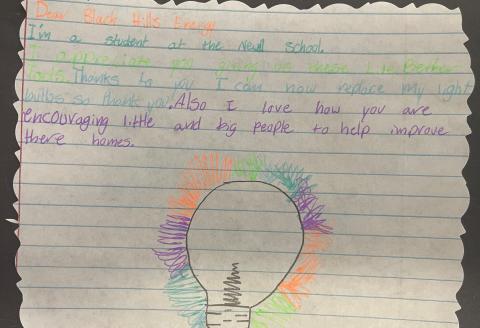 Dear Black Hills Energy
I'm a student at the Newell School.
I appreciate you giving us these
Thanks to you I can now replace my light
bulbs so thank you. Also I love how you are
encouraging little and big people to help improve
there homes.